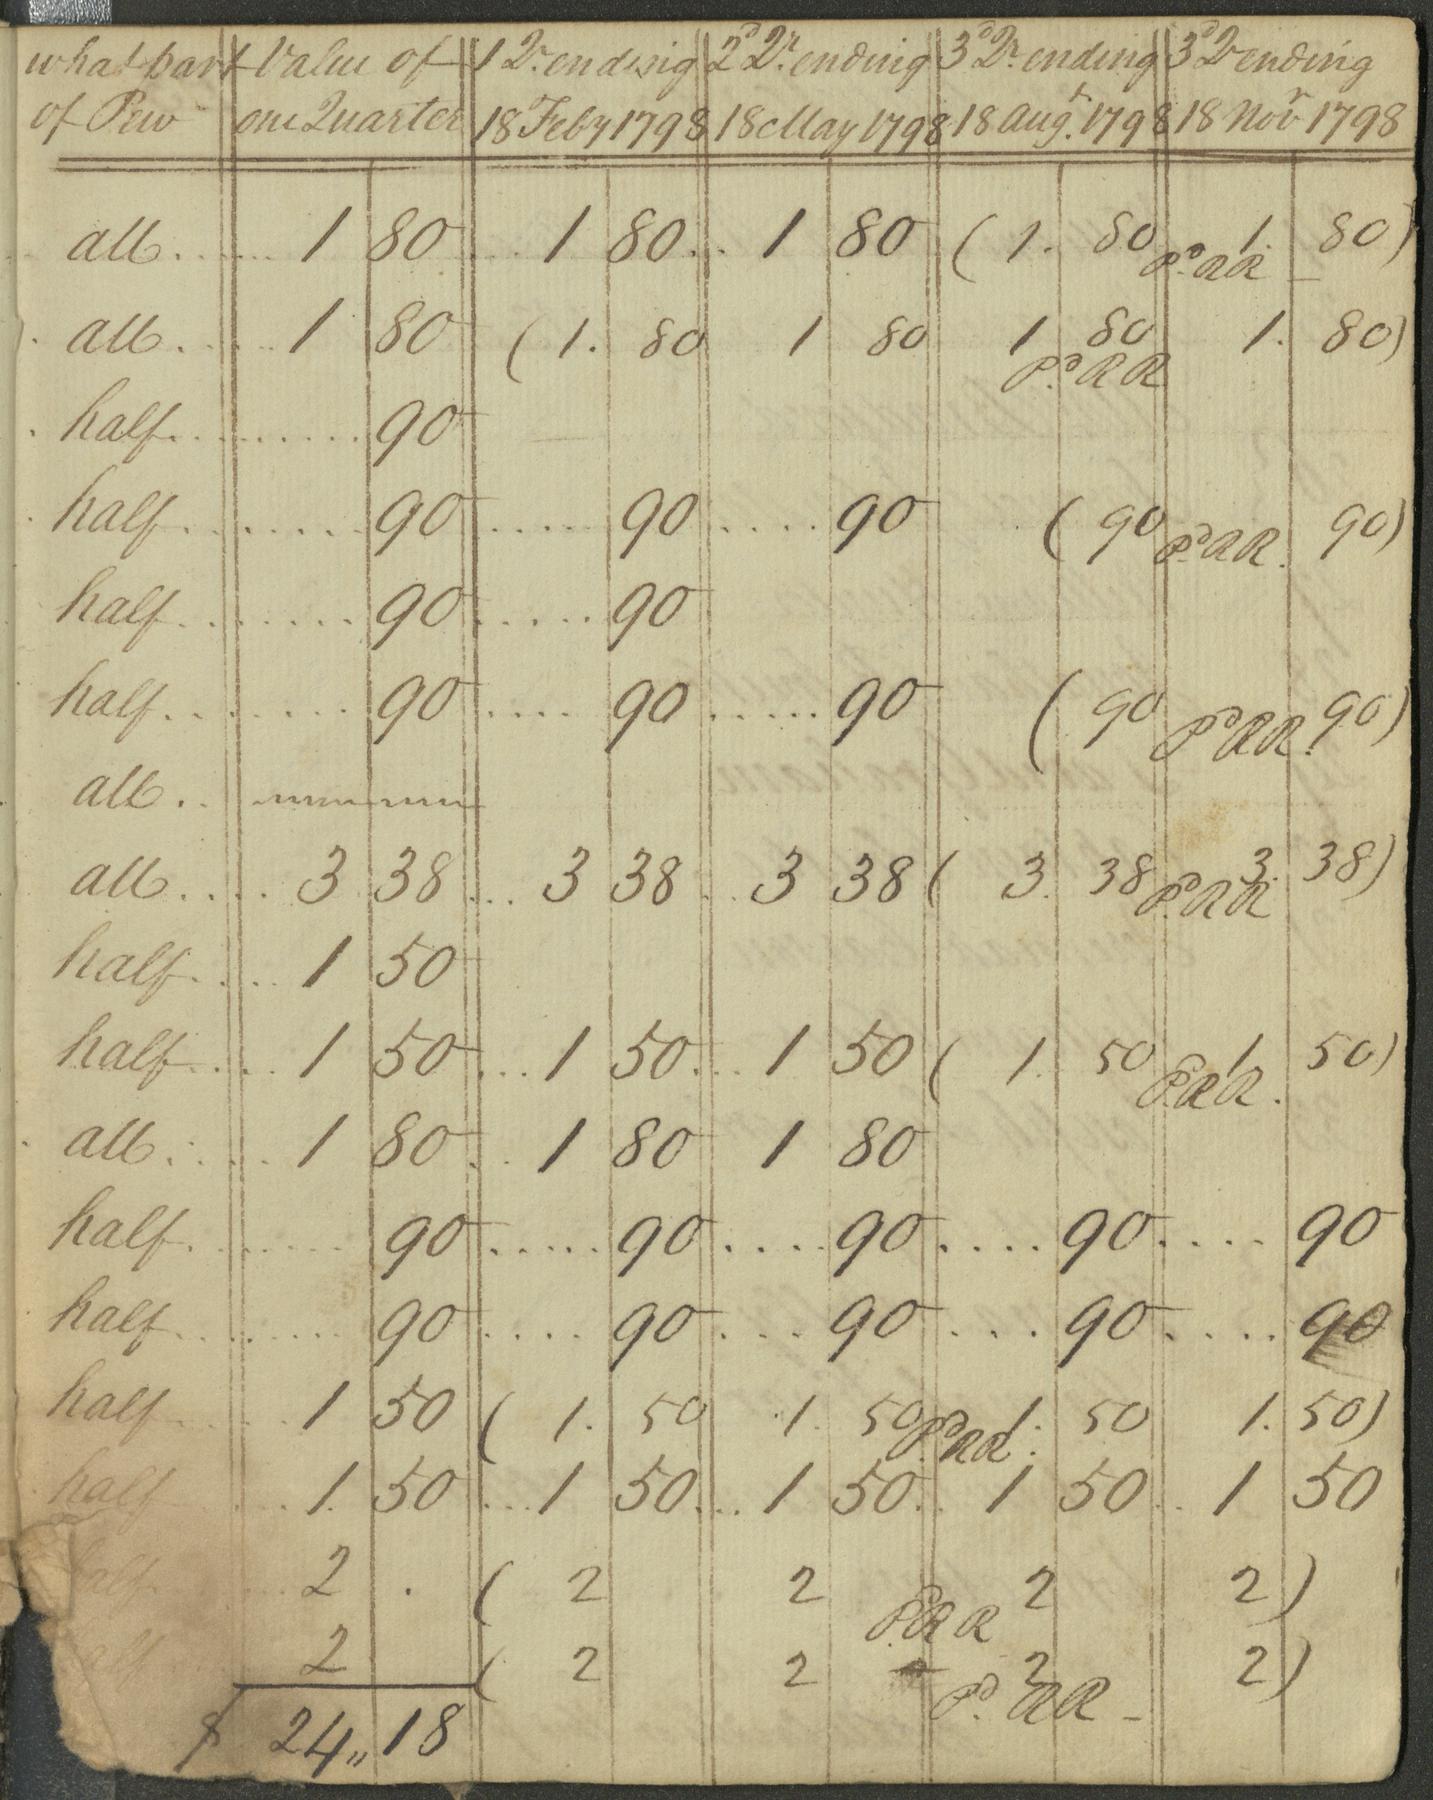 what part Value of 1 Qr. ending 2d Qr. ending 3d Qr. ending 3d Qr ending
of Pew one Quarter 18 Feby 1798 18 May 1798 18 Augt. 1798 18 Novr 1798
all..... 1 80... 1 80... 1 80 ( 1. 80 Pd. RR 1. 80)
all..... 1 80 ( 1. 80 1 80 1 80 1. 80)
Pd. RR
half......... 90
half....... 90..... 90..... 90 ( 90 Pd. RR. 90)
half....... 90..... 90
half....... 90.... 90..... 90 ( 90 Pd RR. 90)
all..
all..... 3 38... 3 38.. 3 38 ( 3. 38 Pd. RR 3. 38)
half.... 1 50
half.... 1 50... 1 50... 1 50 ( 1. 50 Pd. RR. 1 50)
all..... 1 80... 1 80 1 80
half....... 90..... 90.... 90.... 90.... 90
half....... 90.... 90.... 90... 90.... 90
half..... 1 50 ( 1. 50 1. 50 Pd RR. 1. 50 1. 50)
half... 1. 50... 1 50... 1 50.. 1 50.. 1 50
half 2 . ( 2 2 Pd. RR 2 2)
half 2 ( 2 2 Pd. RR - 2 2)
$ 24,, 18